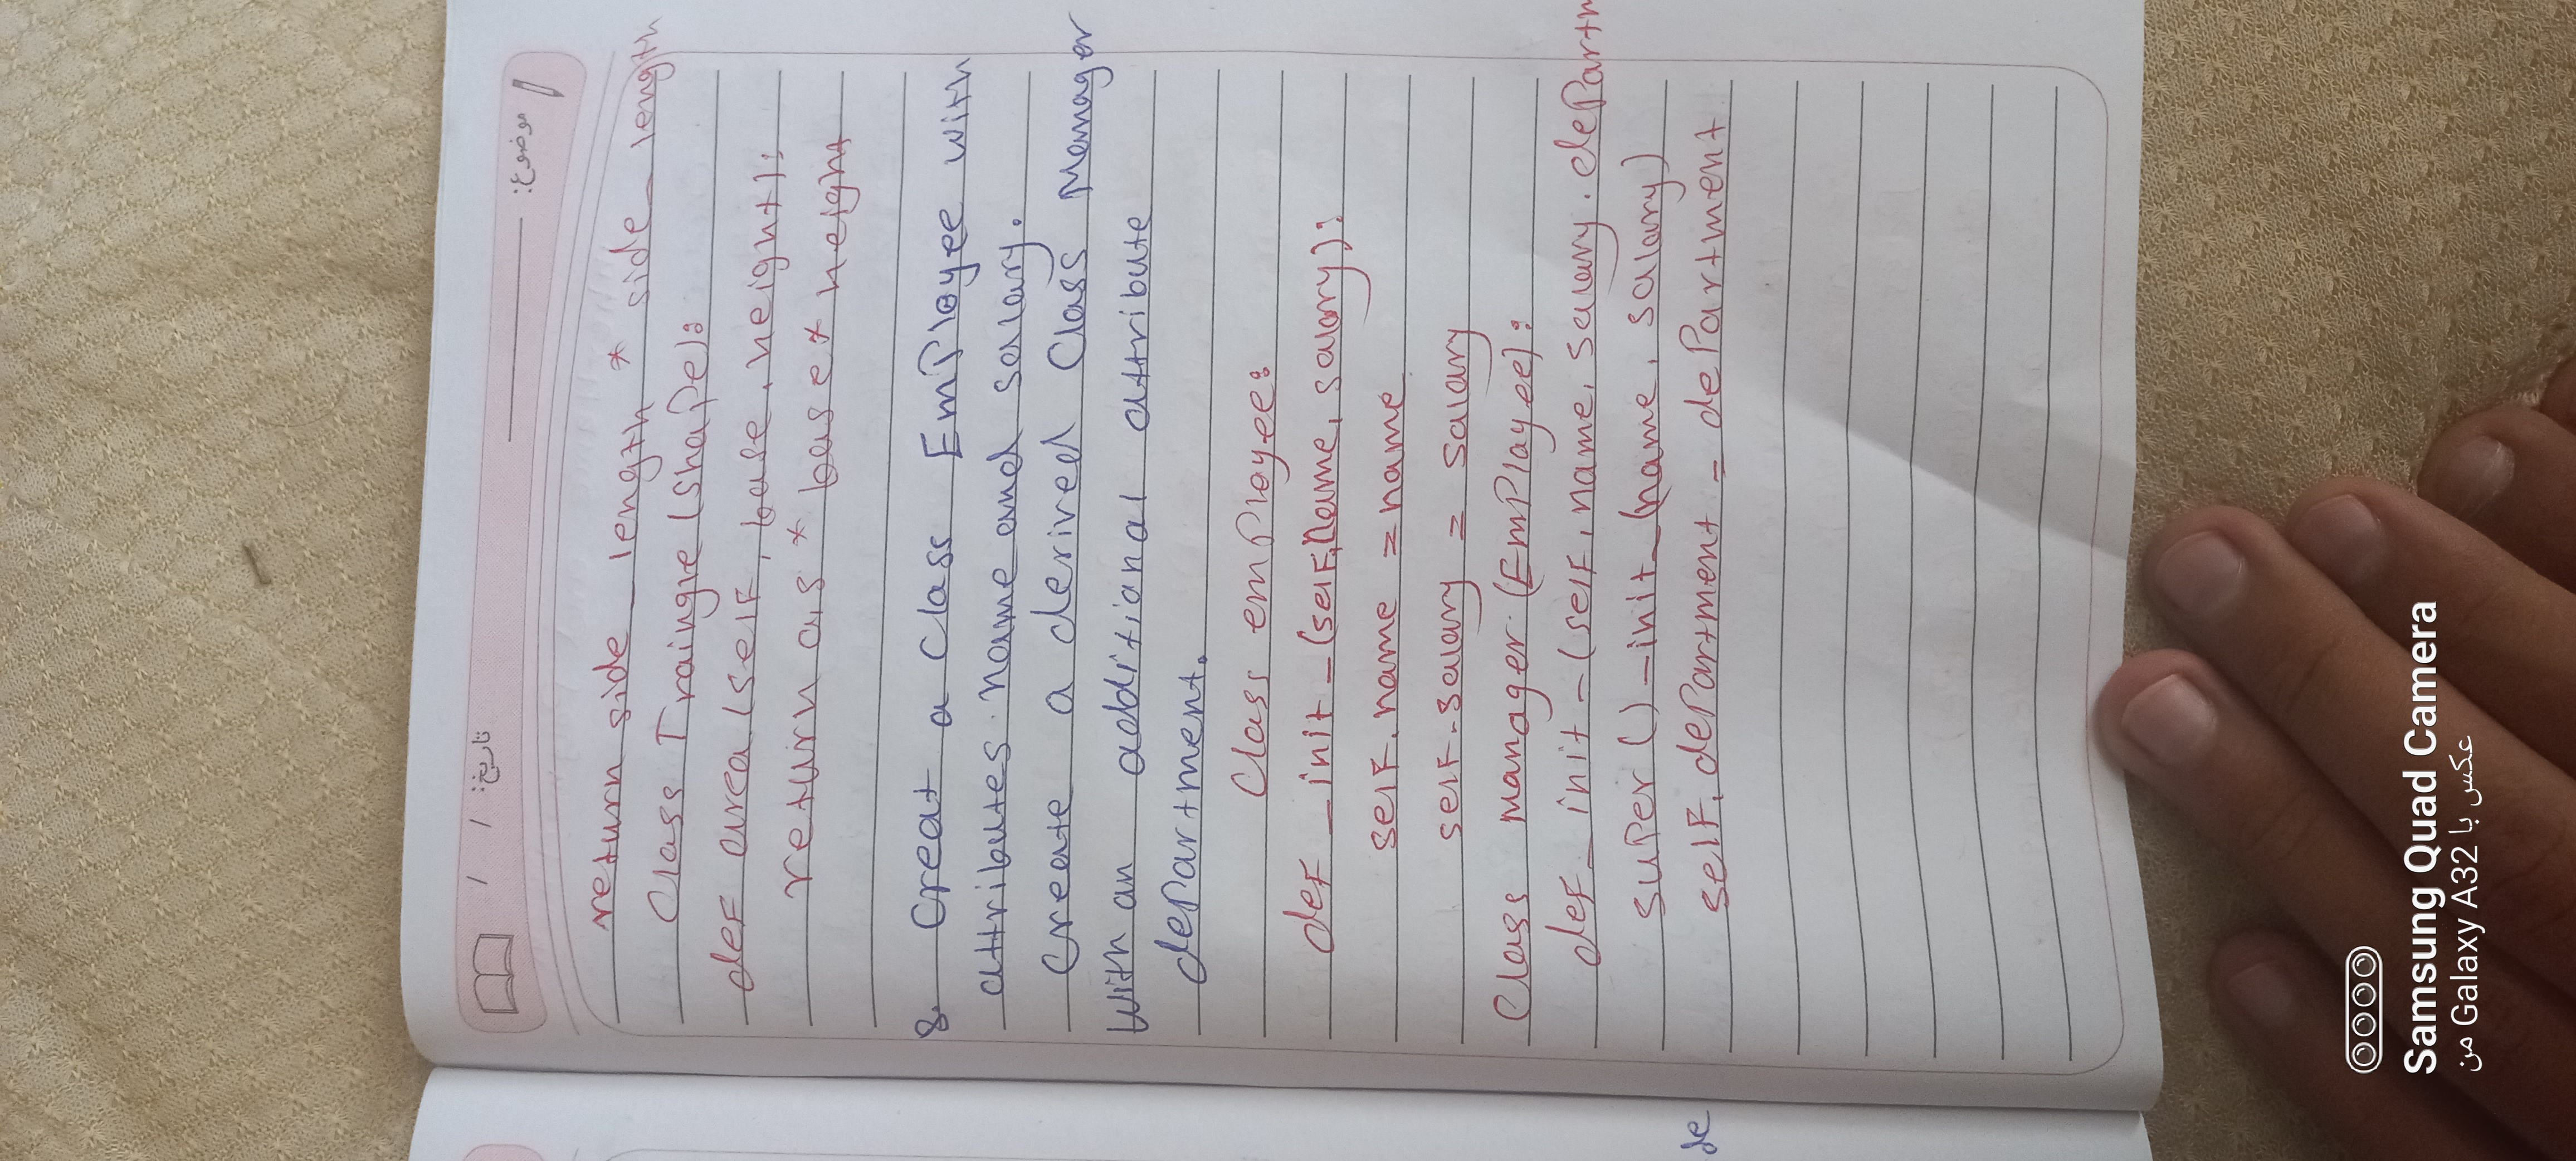 تاریخ: / /
موضوع:
return side_length * side_length
Class Traingle (Shape):
def area (self, base, height):
return 0,5 * base * height
8. Creat a Class EmPloyee with
attributes name and salary.
create a derived Class Manager
with an additional attribute
dePartment.
Class emPloyee:
def _init_(self,name, salary):
self.name = name
self.salary = salary
Class manager (EmPlayee):
def _init_(self, name, salary. dePartm
suPer ()_init_(name, salary)
self. dePartment = dePartment
de
Samsung Quad Camera
عکس با Galaxy A32 من